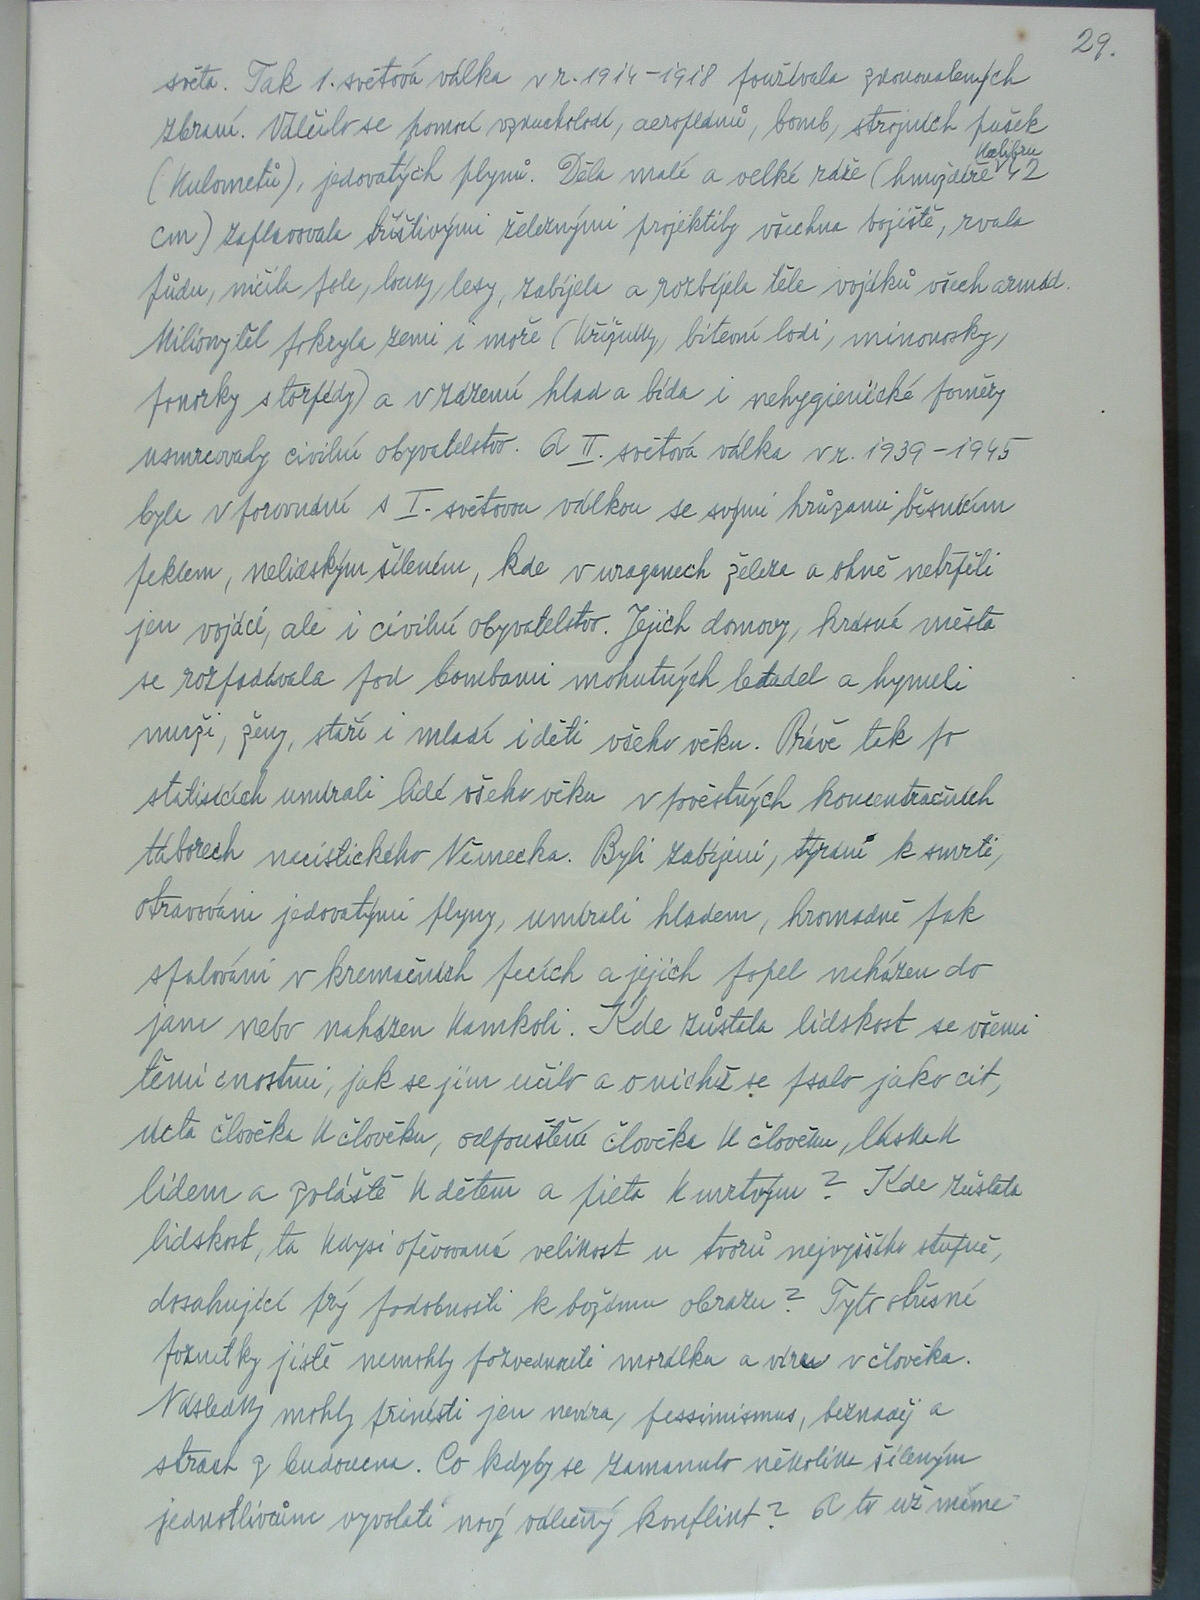 29.
světa. Tak 1. světová válka v r. 1914-1918 používala zdokonalených
zbraní. Válčilo se pomocí vzducholodí, aeroplánů, bomb, strojních pušek
(kulometů), jedovatých plynů. Děla malé a velké ráže (hmoždíře kalibru 42
cm) zaplavovala tříštivými železnými projektily všechna bojiště, rvala
půdu, ničila pole, louky, lesy, zabíjela a rozbíjela těla vojáků všech armád.
Miliony těl pokryla zemi i moře (křižníky, bitevní lodi, minonosky,
ponorky s torpédy) a v zázemí hlad a bída i nehygienické poměry
usmrcovaly civilní obyvatelstvo. A II. světová válka v r. 1939-1945
byla v porovnání s I. světovou válkou se svými hrůzami běsnícím
peklem, nelidským šílením, kde v uraganech železa a ohně netrpěli
jen vojáci, ale i civilní obyvatelstvo. Jejich domovy, krásná města
se rozpadávala pod bombami mohutných letadel a hynuli
muži, ženy, staří i mladí i děti všeho věku. Právě tak po
statisících umírali lidé všeho věku v pověstných koncentračních
táborech nacistického Německa. Byli zabíjeni, týráni k smrti,
otravováni jedovatými plyny, umírali hladem, hromadně pak
spalováni v kremačních pecích a jejich popel neházen do
jam nebo naházen kamkoli. Kde zůstala lidskost se všemi
těmi cnostmi, jak se jim učilo a o nichž se psalo jako cit,
úcta člověka k člověku, odpouštění člověka k člověku, láska k
lidem a zvláště k dětem a pieta k mrtvým? Kde zůstala
lidskost, ta kdysi opěvovaná velikost u tvorů nejvyššího stupně,
dosahující prý podobnosti k božímu obrazu? Tyto otřesné
poznatky jistě nemohly pozvednouti morálku a víru v člověka.
Následky mohly přinésti jen nevíra, pessimismus, beznaděj a
strach z budoucna. Co kdyby se zamanulo několika šíleným
jednotlivcům vyvolati nový válečný konflikt? A to už máme